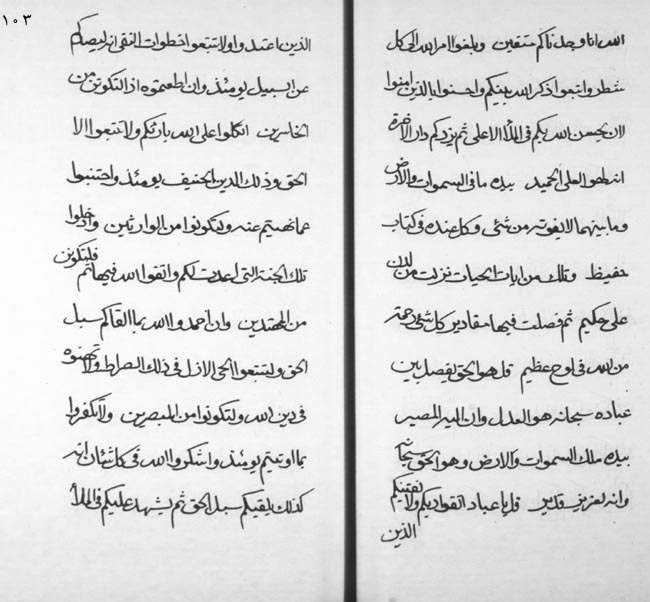 الله انا وجدناكم متقين وبلغوا امر الله الى كل
شطر واتبعوا ذكر الله بينكم واحسنوا بالذين امنوا
لان يحسن الله بكم فى الملأ الاعلى ثم يزدكم دار الاخرة
انه لهو العلى الحميد بيده ما فى السموات والارض
وما بينهما لا يفوته من شئ وكل عنده فى كتاب
حفيظ وتلك من ايات الحيات نزلت من لدن
على حكيم ثم فصلت فيها مقادير كل شئ رحمة
من الله فى لوح عظيم قل هو الحق يفصل بين
عباده سبحانه هو العدل وان اليه المصير
بيده ملك السموات والارض وهو الحق
وانه لعزيز قدير قل يا عباد اتقوا ربكم ولا يفتنكم
الذين
١٠٣
الذين اعتدوا ولا تتبعوا خطوات النفى انه ليصدكم
عن السبيل يومئذ وان اطعتموه اذا لتكونن من
الخاسرين اتكلوا على الله بارئكم ولا تتبعوا الا
الحق وذلك الدين الحنيف يومئذ واجتنبوا
عما نهيتم عنه ولتكونوا من الوارثين وادخلوا
تلك الجنة التى اعدت لكم واتقوا الله فيها ثم فلتكونن
من المهتدين وان احمدوا الله بما القاكم سبل
الحق ولتتبعوا الحى الازل فى ذلك الصراط ولا تهنوه
فى دين الله ولتكونوا من المبصرين ولا تكفروا
بما اوتيتم يومئذ واشكروا الله فى كل شئان انه
كذلك يلقيكم سبل الحق ثم يشهد عليكم فى الملأ